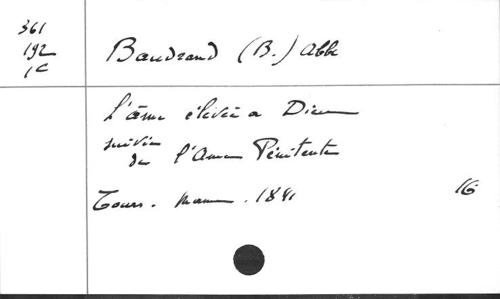 361
192
1C
Baudrand (B.) Abbé
L'âme élevée a Dieu
suivie
de l'Ame Pénitente
Tours. Mame. 16